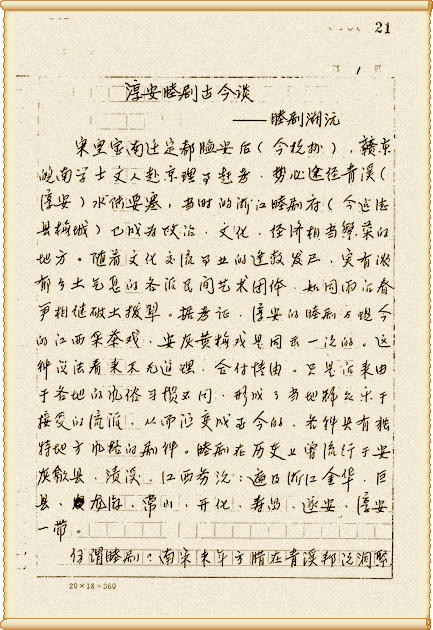 21
1
淳安睦剧古今谈
——睦剧溯沅
宋皇室南迁定都临安后（今杭州），赣京
皖南学士文人赴京理事赶考，势必途径青溪（
淳安）水陆要塞，当时的浙江睦剧府（今近法
县梅城）已成为政治、文化、经济相当繁荣的
地方。随着文化交流事业的逢救发芝，寅有浓
郁乡土气息的各派民间艺术团体，如同雨后春
笋相继破土拔翠。据考证，淳安的睦剧与现今
的江西采茶戏，安庆黄梅戏是同出一次的。这
种说法看来不无道理，合付情由。只是后来由
于各地的风俗习惯不同，形成了当地群众乐于
接受的流派，从而演变成至今的，各种具有独
特地方风格的剧种。睦剧在历史上曾流行于安
庆歙县，绩溪，江西务沅：遍及浙江金华，巨
县，龙游，常山，开化，寿昌，遂安，淳安
一带。
何谓睦剧：南宋末年方腊在青溪邦沅洞聚
20×18=360